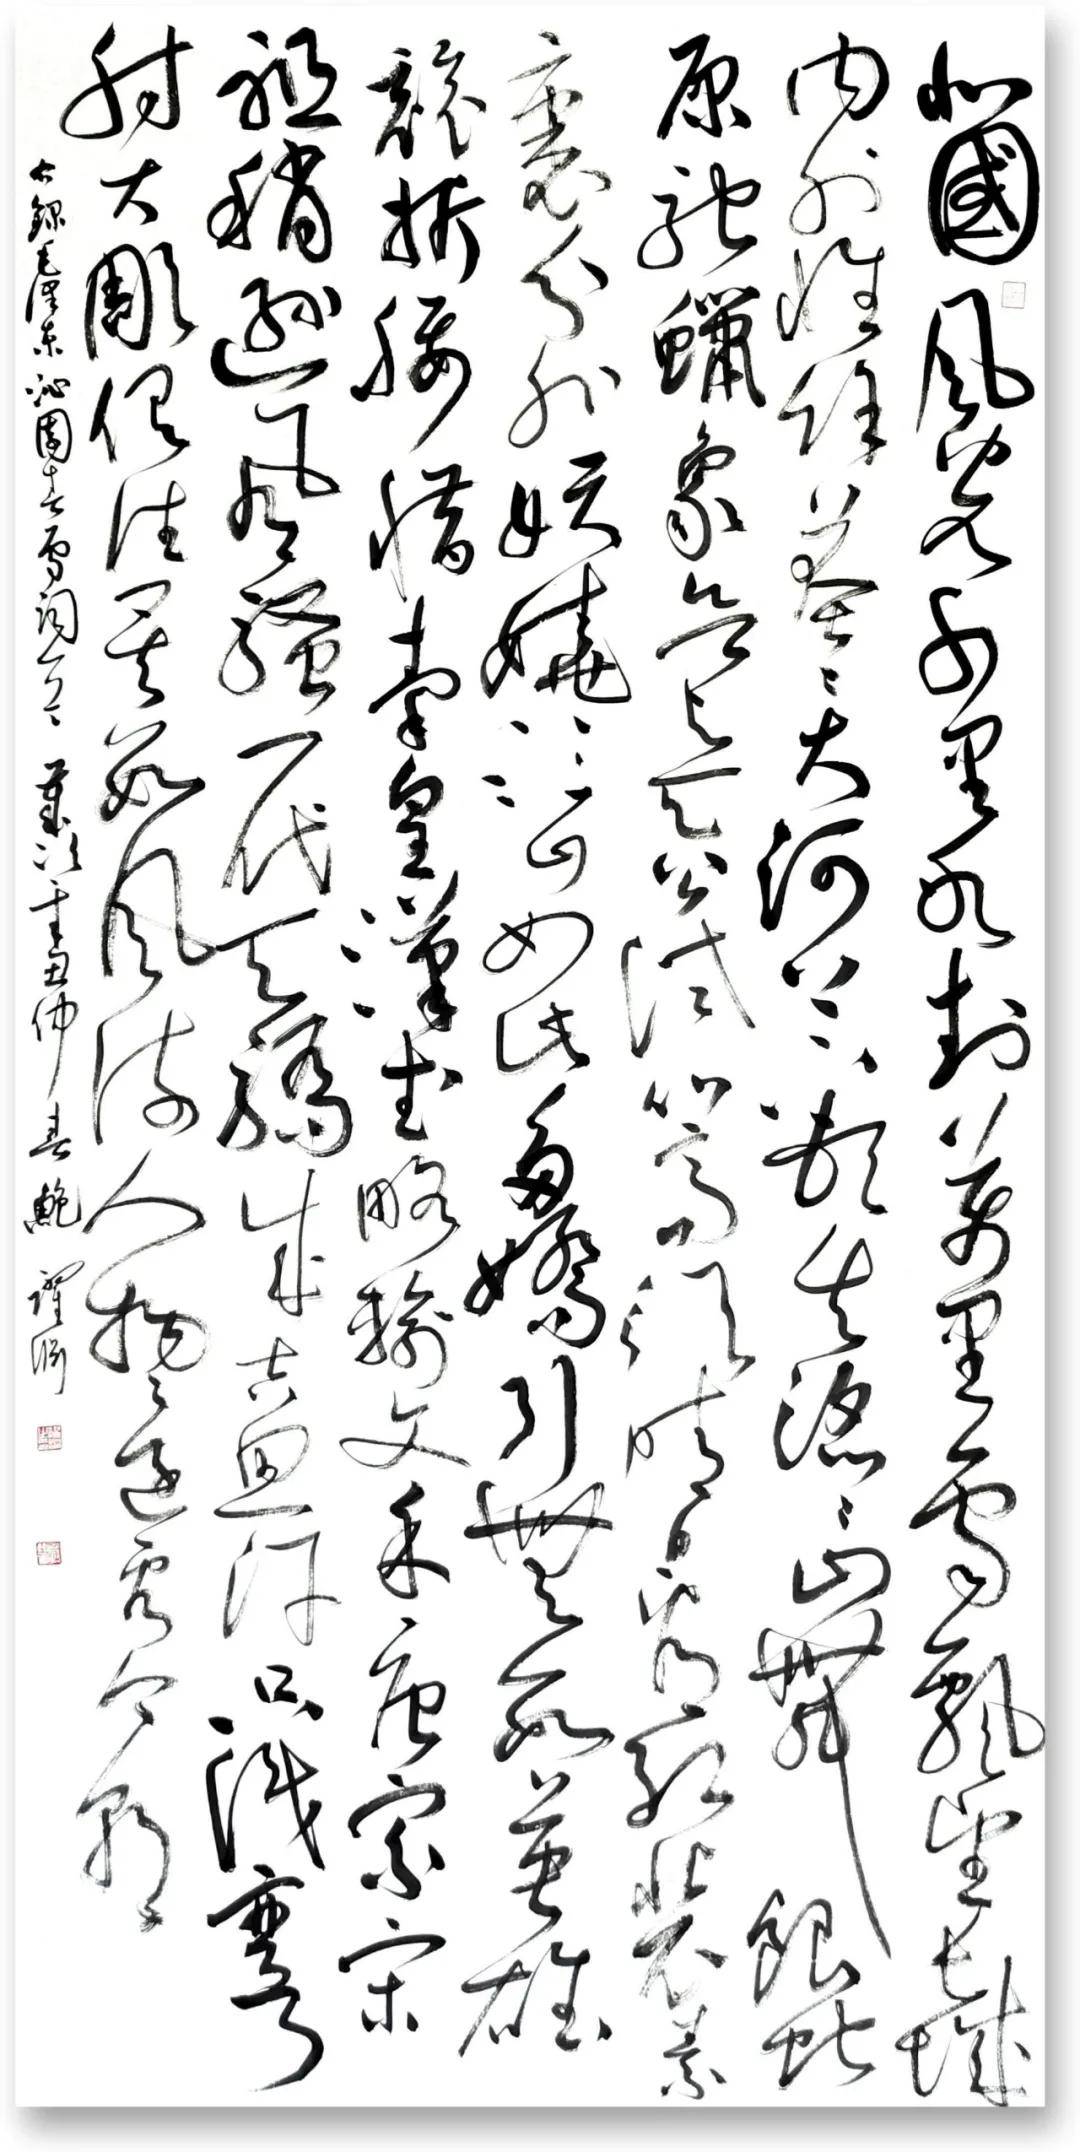 北國風光千里冰封萬里雪飄望長城
内外惟餘莽〻大河上下頓失滔〻山舞銀蛇
原馳蠟象欲与天公試比高須晴日看紅裝素
裹分外妖嬈江山如此多嬌引無數英雄
競折腰惜秦皇漢武略輸文采唐宗宋
祖稍遜風騷一代天驕成吉思汗只識彎弓
射大雕俱往矣數風流人物還看今朝
右錄毛澤東沁園春雪詞一首 歲次辛丑仲春 鮑